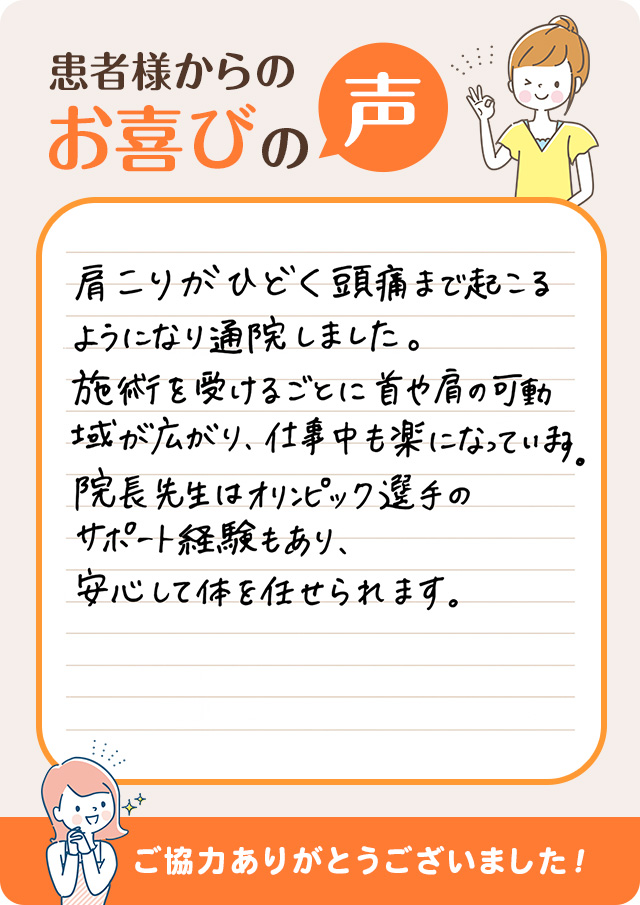 患者様からの
お喜びの声
肩こりがひどく頭痛まで起こる
ようになり通院しました。
施術を受けるごとに首や肩の可動
域が広がり、仕事中も楽になっています。
院長先生はオリンピック選手の
サポート経験もあり、
安心して体を任せられます。
ご協力ありがとうございました！